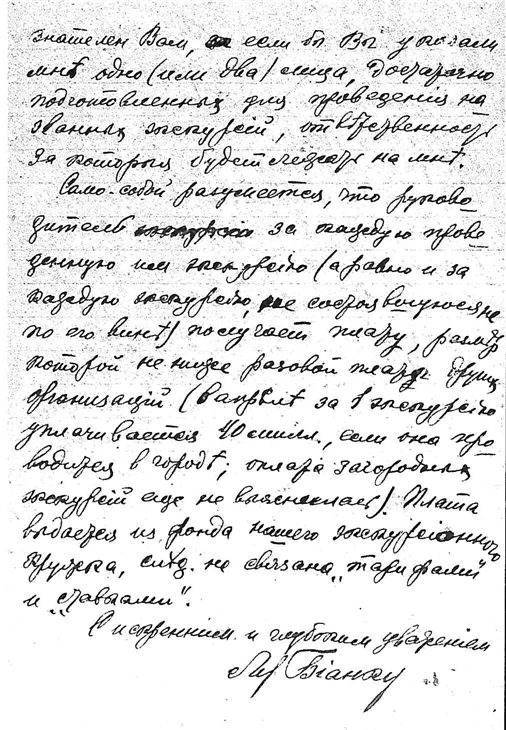 знателен Вам, если бы Вы указали
мнѣ одно (или два) лица, достаточно
подготовленных для проведенія на
званных экскурсій, отвѣтственность
за которыя будет лежать на мнѣ.
Само-собой разумѣется, что руково
дитель за каждую прове
денную им экскурсію (а равно и за
каждую экскурсію, не состоявшуюся не
по его винѣ) получает плату, размѣр
которой не ниже разовой платы других
организацій (в апрѣлѣ за 1 экскурсію
уплачивается 40 милл., если она про
водится в городѣ; оплата загородных
экскурсій еще не выяснилась). Плата
выдается из фонда нашего экскурсіонного
кружка, слѣд. не связана „тарифами“
и „ставками“.
С искренним и глубоким уваженіем
Біанки